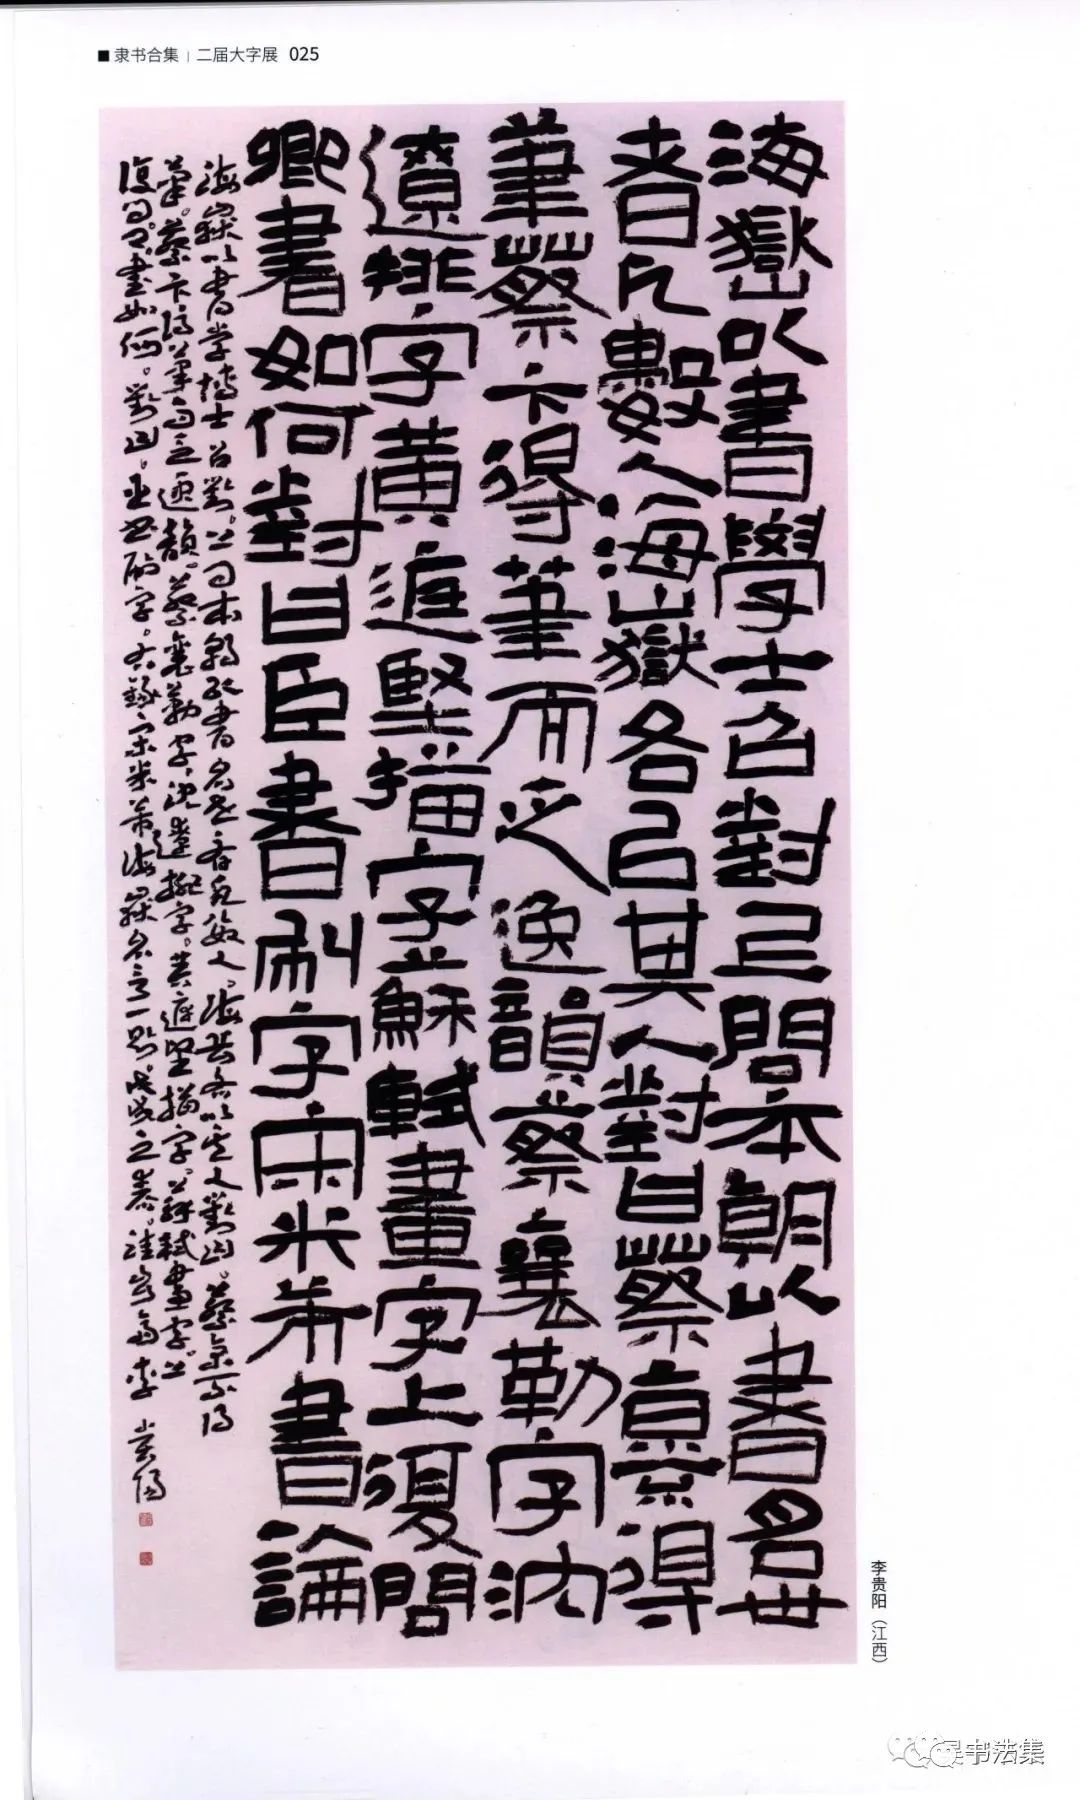 ■ 隶书合集 | 二届大字展 025
海嶽以書學士召對上問本朝以書名世
者凡數人海嶽各以其人對曰蔡京得
筆蔡卞得筆而乏逸韻蔡襄勒字沈
遼排字黃庭堅描字蘇軾畫字上復問
卿書如何對曰臣書刷字宋米芾書論
海嶽以書學博士召對上問本朝以書名世者凡數人海岳各以其人對曰蔡京不得
筆蔡卞得筆而乏逸韻蔡襄勒字沈遼排字黃庭堅描字蘇軾畫字上
復問卿書如何對曰臣書刷字右錄宋米芾海嶽名言一則
李贵阳（江西）
书法集